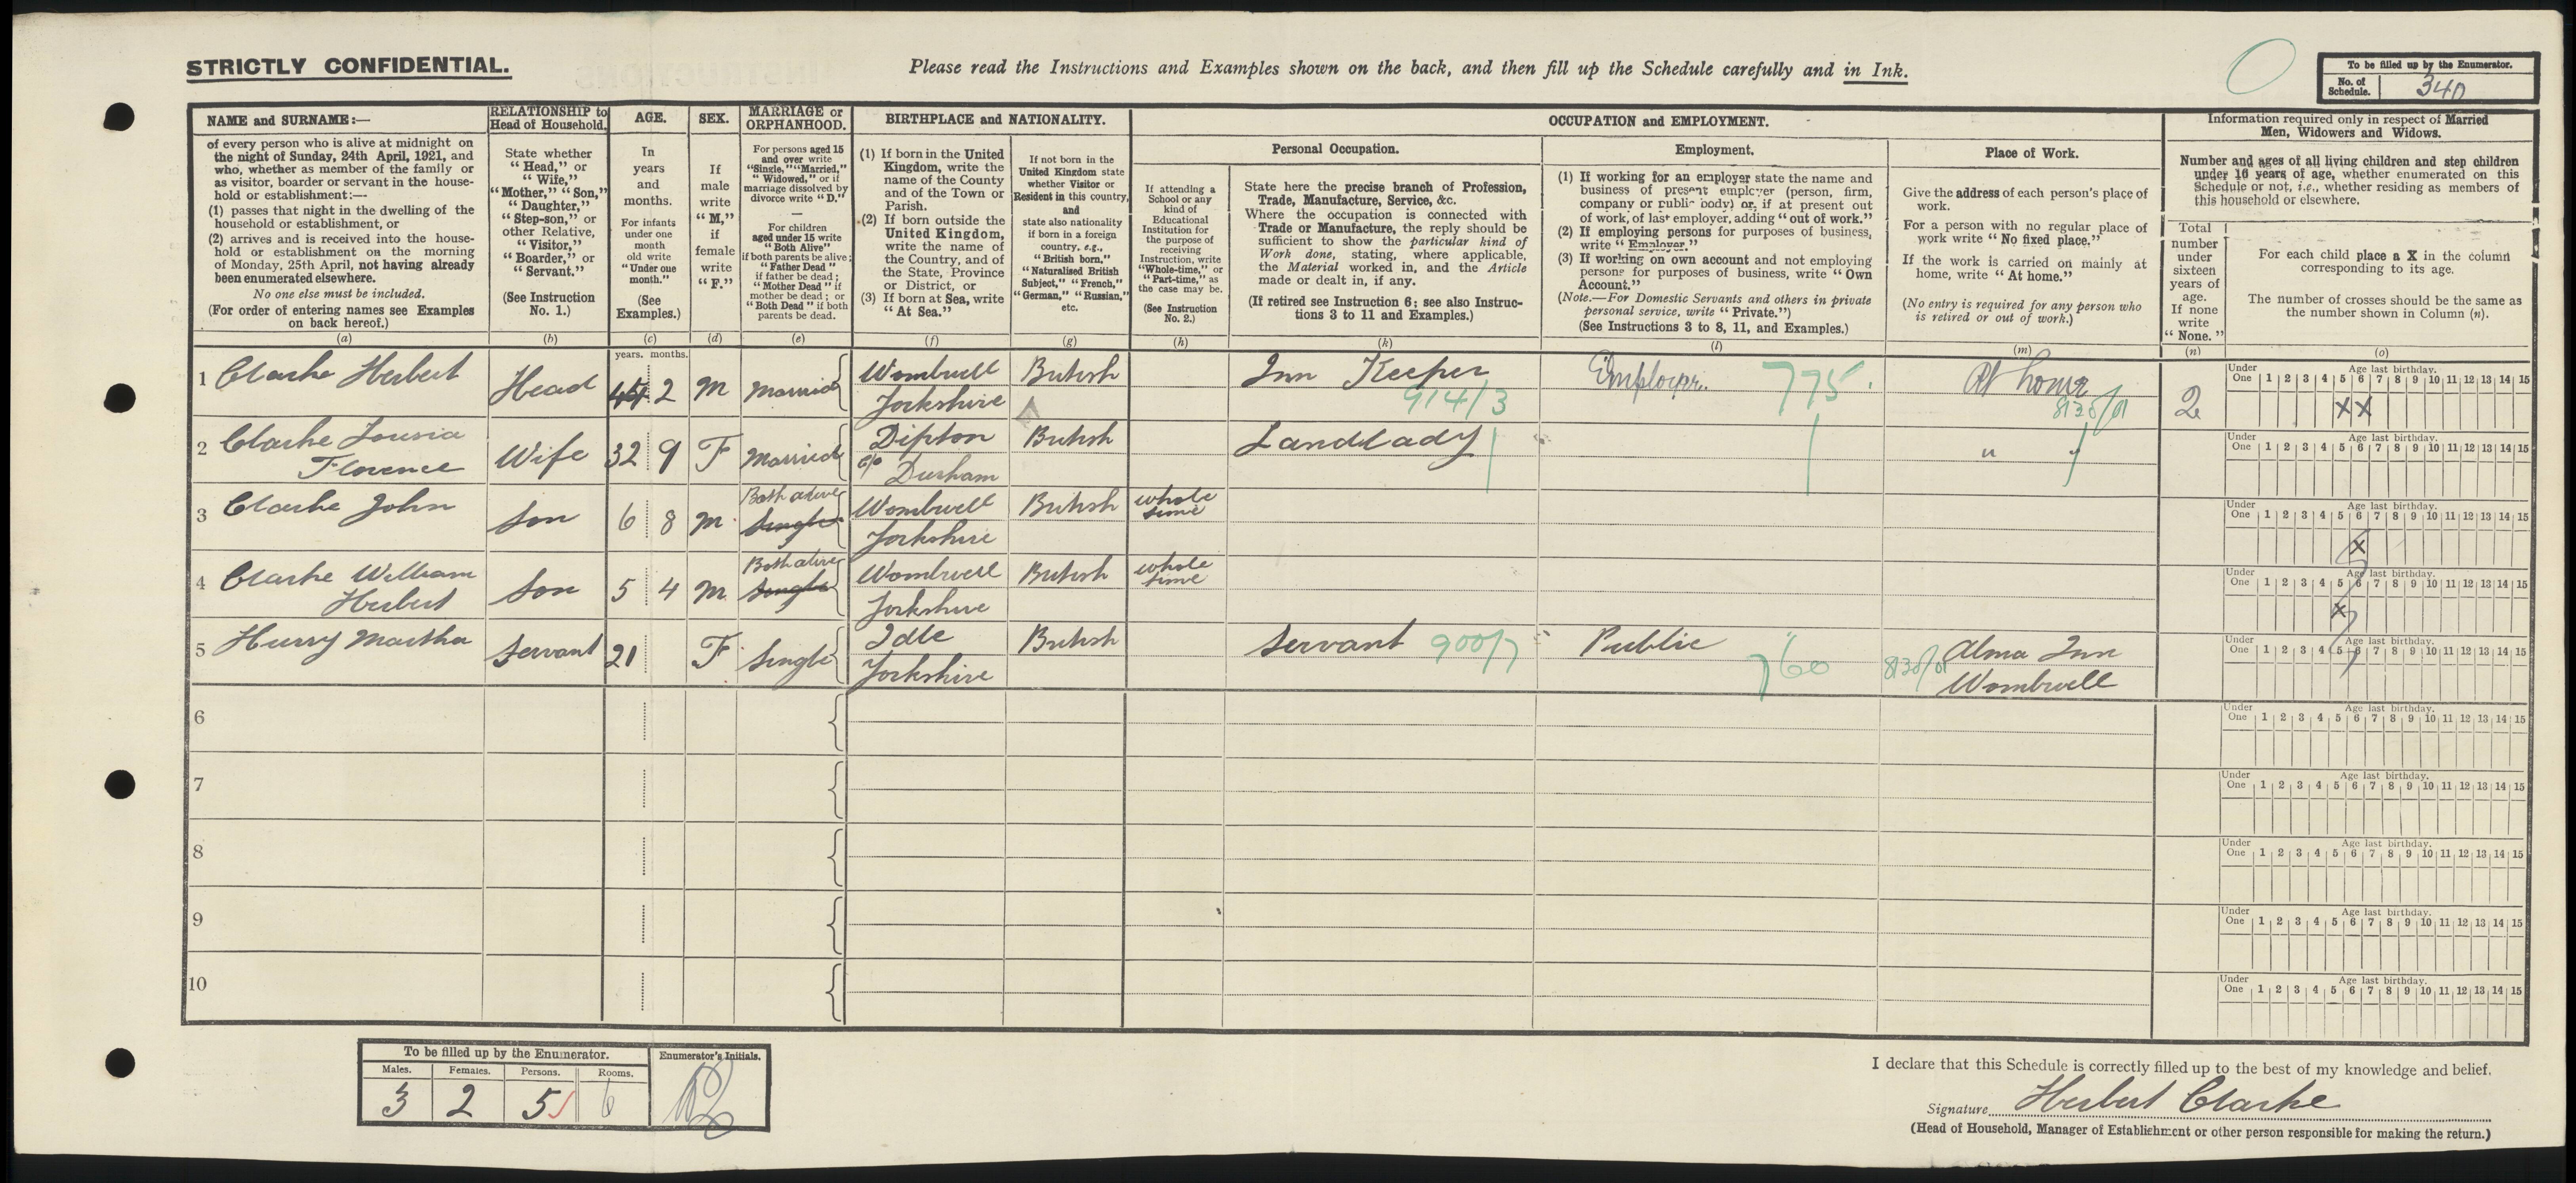 STRICTLY CONFIDENTIAL.
Please read the Instructions and Examples shown on the back, and then fill up the Schedule carefully and in Ink.
To be filled up by the Enumerator.
No. of Schedule. 340
NAME and SURNAME:—
of every person who is alive at midnight on
the night of Sunday, 24th April, 1921, and
who, whether as member of the family or
as visitor, boarder or servant in the house-
hold or establishment:—
(1) passes that night in the dwelling of the
household or establishment, or
(2) arrives and is received into the house-
hold or establishment on the morning
of Monday, 25th April, not having already
been enumerated elsewhere.
No one else must be included.
(For order of entering names see Examples
on back hereof.)
(a)
RELATIONSHIP to
Head of Household.
State whether
"Head," or
"Wife,"
"Mother," "Son,"
"Daughter,"
"Step-son," or
other Relative,
"Visitor,"
"Boarder," or
"Servant."
(See Instruction
No. 1.)
(b)
AGE.
In
years
and
months.
For infants
under one
month
old write
"Under one
month."
(See
Examples.)
(c)
years. months.
SEX.
If
male
write
"M,"
if
female
write
"F."
(d)
MARRIAGE or
ORPHANHOOD.
For persons aged 15
and over write
"Single," "Married,"
"Widowed," or if
marriage dissolved by
divorce write "D."
—
For children
aged under 15 write
"Both Alive"
if both parents be alive;
"Father Dead"
if father be dead;
"Mother Dead" if
mother be dead; or
"Both Dead" if both
parents be dead.
(e)
BIRTHPLACE and NATIONALITY.
(1) If born in the United
Kingdom, write the
name of the County
and of the Town or
Parish.
(2) If born outside the
United Kingdom,
write the name of
the Country, and of
the State, Province
or District, or
(3) If born at Sea, write
"At Sea."
(f)
If not born in the
United Kingdom state
whether Visitor or
Resident in this country,
and
state also nationality
if born in a foreign
country, e.g.,
"British born,"
"Naturalised British
Subject," "French,"
"German," "Russian,"
etc.
(g)
OCCUPATION and EMPLOYMENT.
If attending a
School or any
kind of
Educational
Institution for
the purpose of
receiving
Instruction, write
"Whole-time," or
"Part-time," as
the case may be.
(See Instruction
No. 2.)
(h)
Personal Occupation.
State here the precise branch of Profession,
Trade, Manufacture, Service, &c.
Where the occupation is connected with
Trade or Manufacture, the reply should be
sufficient to show the particular kind of
Work done, stating, where applicable,
the Material worked in, and the Article
made or dealt in, if any.
(If retired see Instruction 6; see also Instruc-
tions 3 to 11 and Examples.)
(k)
Employment.
(1) If working for an employer state the name and
business of present employer (person, firm,
company or public body) or, if at present out
of work, of last employer, adding "out of work."
(2) If employing persons for purposes of business,
write "Employer."
(3) If working on own account and not employing
persons for purposes of business, write "Own
Account."
(Note.—For Domestic Servants and others in private
personal service, write "Private.")
(See Instructions 3 to 8, 11, and Examples.)
(l)
Place of Work.
Give the address of each person's place of
work.
For a person with no regular place of
work write "No fixed place."
If the work is carried on mainly at
home, write "At home."
(No entry is required for any person who
is retired or out of work.)
(m)
Information required only in respect of Married
Men, Widowers and Widows.
Number and ages of all living children and step children
under 16 years of age, whether enumerated on this
Schedule or not, i.e., whether residing as members of
this household or elsewhere.
Total
number
under
sixteen
years of
age.
If none
write
"None."
(n)
For each child place a X in the column
corresponding to its age.
The number of crosses should be the same as
the number shown in Column (n).
(o)
1 Clarke Herbert Head 45 2 M Married Wombwell Yorkshire British Inn Keeper 914/3 Employer. 775. At home 8138/01 2
Under One Age last birthday. 1 2 3 4 5 6 7 8 9 10 11 12 13 14 15
X X
2 Clarke Lousia
Florence Wife 32 9 F Married Dipton
c/o Durham British Landlady " "
Under One Age last birthday. 1 2 3 4 5 6 7 8 9 10 11 12 13 14 15
3 Clarke John Son 6 8 M. Both alive Single Wombwell Yorkshire British whole time
Under One Age last birthday. 1 2 3 4 5 6 7 8 9 10 11 12 13 14 15
X
4 Clarke William
Herbert Son 5 4 M. Both alive Single Wombwell Yorkshire British whole time
Under One Age last birthday. 1 2 3 4 5 6 7 8 9 10 11 12 13 14 15
X
5 Hurry Martha Servant 21 F Single Idle Yorkshire British Servant 900/7 Public 760 8138/01 Alma Inn
Wombwell
Under One Age last birthday. 1 2 3 4 5 6 7 8 9 10 11 12 13 14 15
6
Under One Age last birthday. 1 2 3 4 5 6 7 8 9 10 11 12 13 14 15
7
Under One Age last birthday. 1 2 3 4 5 6 7 8 9 10 11 12 13 14 15
8
Under One Age last birthday. 1 2 3 4 5 6 7 8 9 10 11 12 13 14 15
9
Under One Age last birthday. 1 2 3 4 5 6 7 8 9 10 11 12 13 14 15
10
Under One Age last birthday. 1 2 3 4 5 6 7 8 9 10 11 12 13 14 15
To be filled up by the Enumerator.
Males. Females. Persons. Rooms.
3 2 5 6
Enumerator's Initials.
I declare that this Schedule is correctly filled up to the best of my knowledge and belief.
Signature Herbert Clarke
(Head of Household, Manager of Establishment or other person responsible for making the return.)